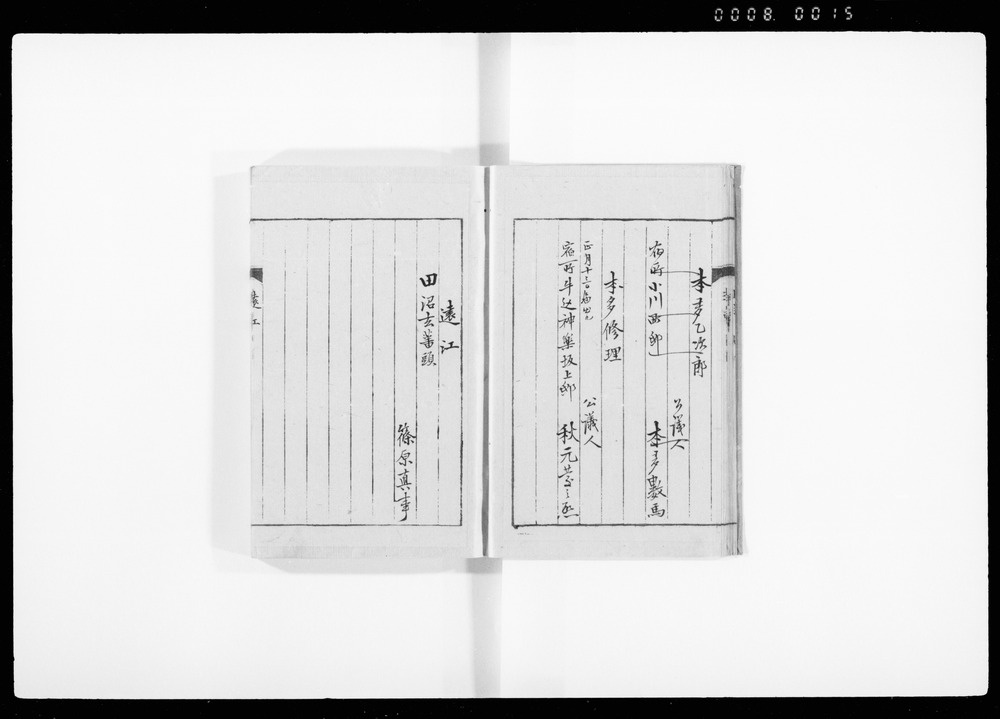 0008. 0015
本多乙次郎
公議人
宿所小川西邸
本多數馬
本多修理
正月十三日
公議人
宿所牛込神樂坂上邸
秋元
遠江
田沼玄蕃頭
篠原真事
遠江